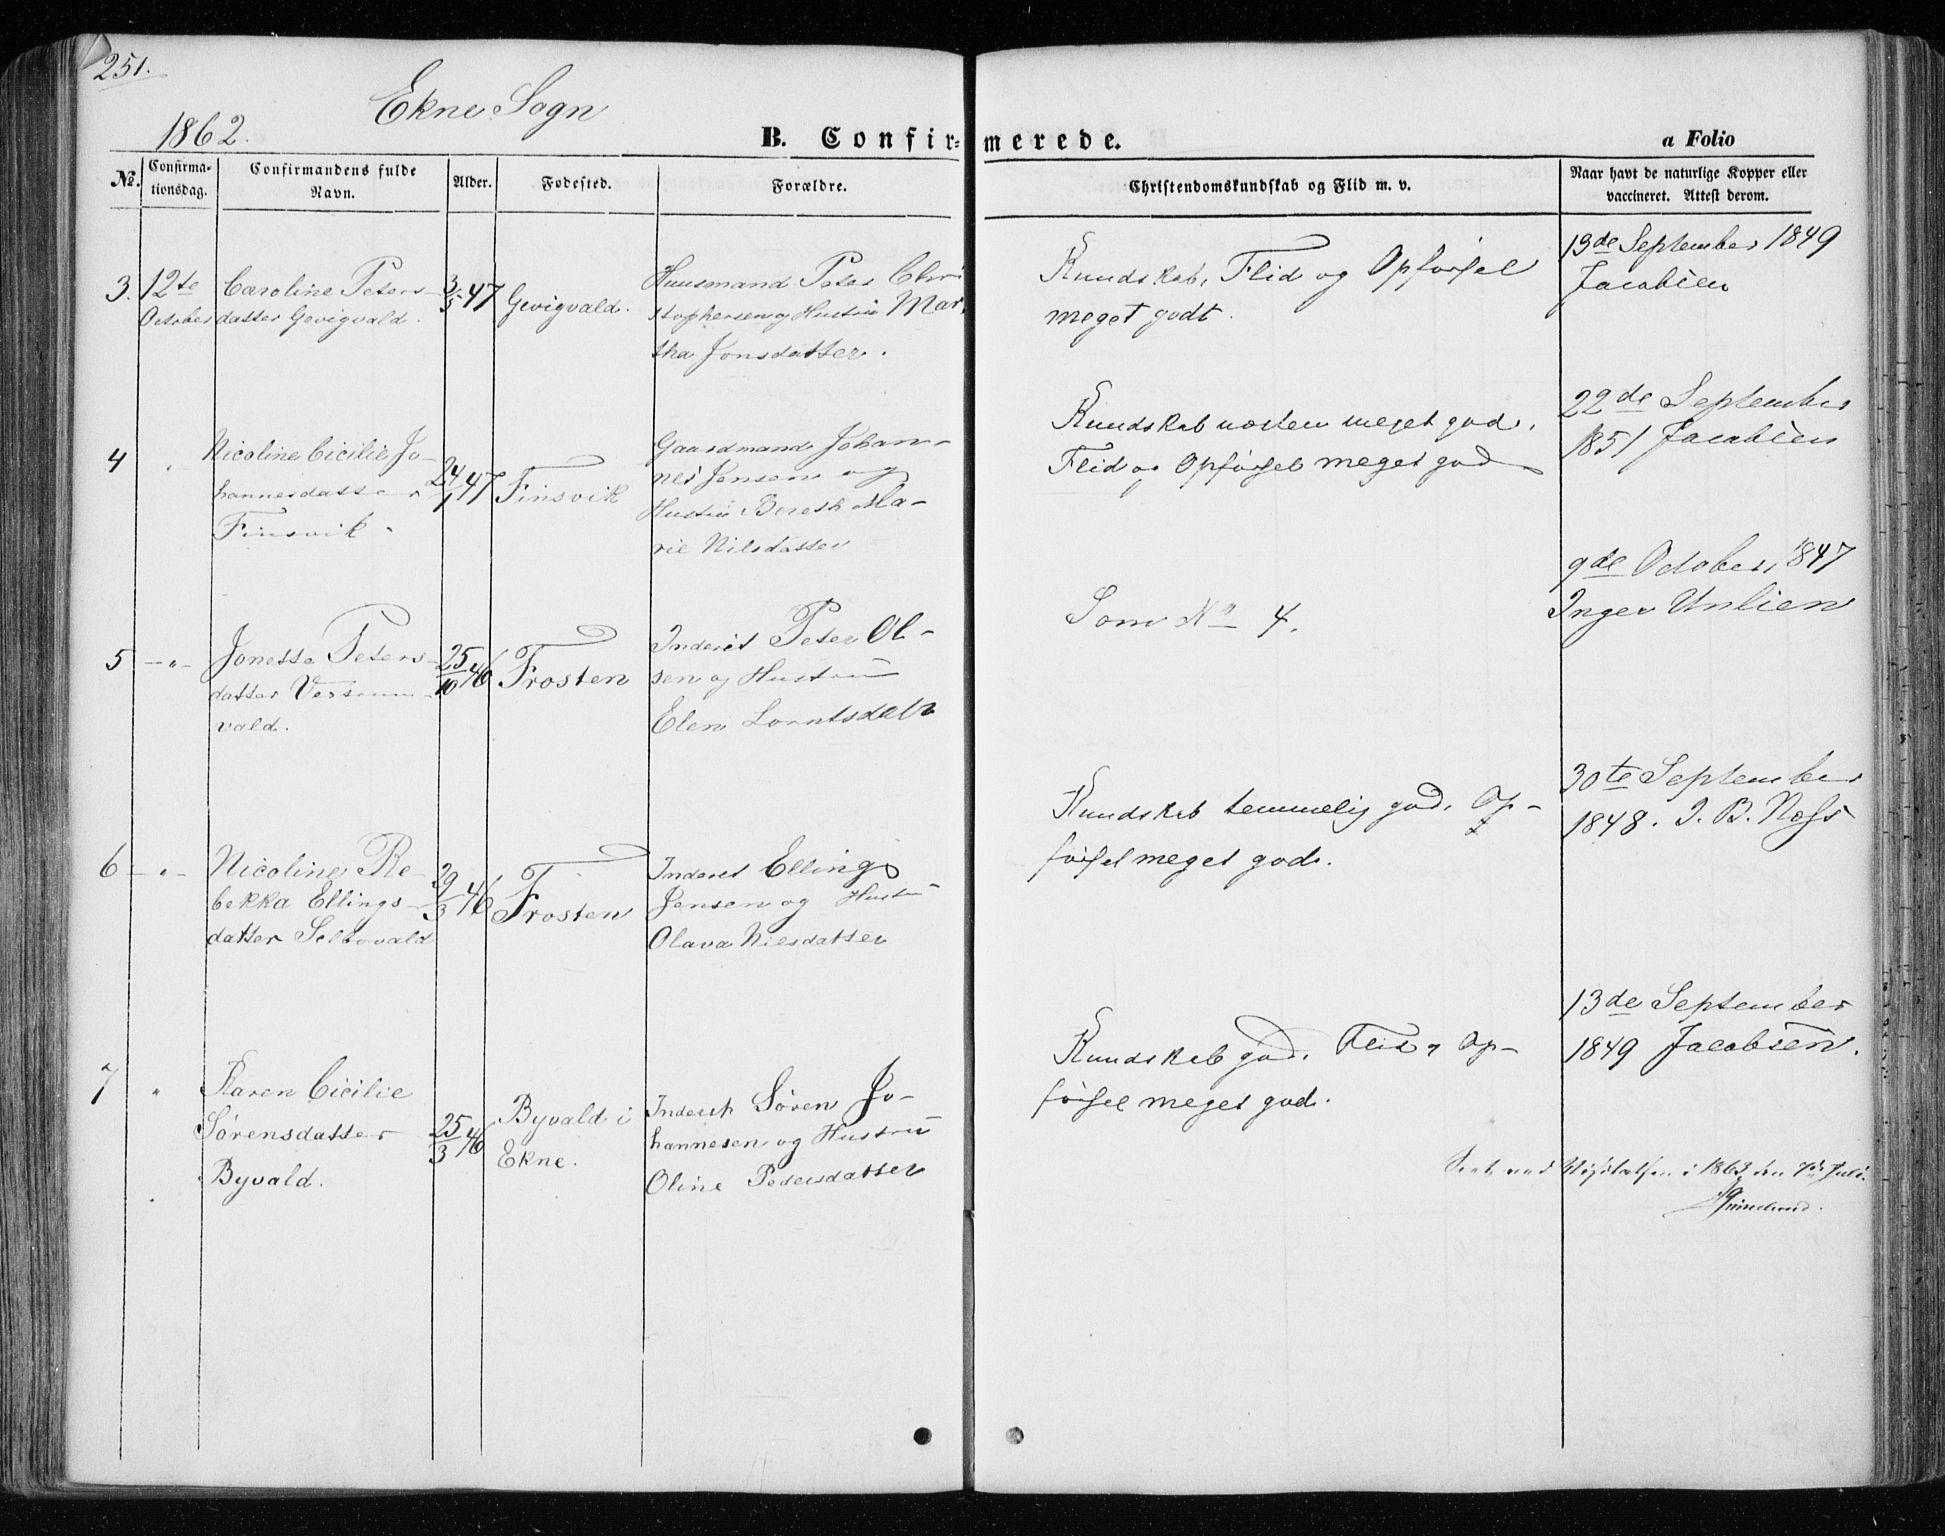 251.
Ekne Sogn
1862.
B. Confirmerede.
a Folio
No.
Confirma-
tionsdag.
Confirmandens fulde
Navn.
Alder.
Fødested.
Forældre.
Christendomskundskab og Flid m. v.
Naar havt de naturlige Kopper eller
vaccineret. Attest derom.
3. 12te
October
Caroline Peters-
datter Gevigvald.
3/5 47
Gevigvald.
Huusmand Peter Chri
stophersen og Hustru Mar
tha Jonsdatter.
Kundskab, Flid og Opførsel
meget godt.
13de September 1849
Jacobsen
4 "
Nicoline Cicilie Jo-
hannesdatter
Finsvik.
24/1 47
Finsvik
Gaardmand Johan-
nes Jensen og
Hustru Bereth Ma-
rie Nilsdatter
Kundskab næsten meget god.
Flid og Opførsel meget god
22de September
1851 Jacobsen
5 - " -
Jonetta Peters-
datter
vald.
25/10 46
Frosten
Inderst Peter Ol-
sen og Hustru
Elen Lorntsdatr
Som No 4.
9de October 1847
Inger Unlien
6 - " -
Nicoline Re-
bekka Ellings-
datter Selbovald
29/3 46
Frosten
Inderst Elling
Jensen og Hustru
Olava Nilsdatter
Kundskab temmelig god. Op-
førsel meget god.
30te September
1848. I. B. Næss
7 "
Karen Cicilie
Sørensdatter
Byvald.
25/3 46
Byvald i
Ekne.
Inderst Søren Jo-
hannesen og Hustru
Oline Pedersdatter
Kundskab god. Flid og Op-
førsel meget god.
13de September
1849 Jacobsen.
Seet ved Visitatsen i 1863 den 7de Juli.